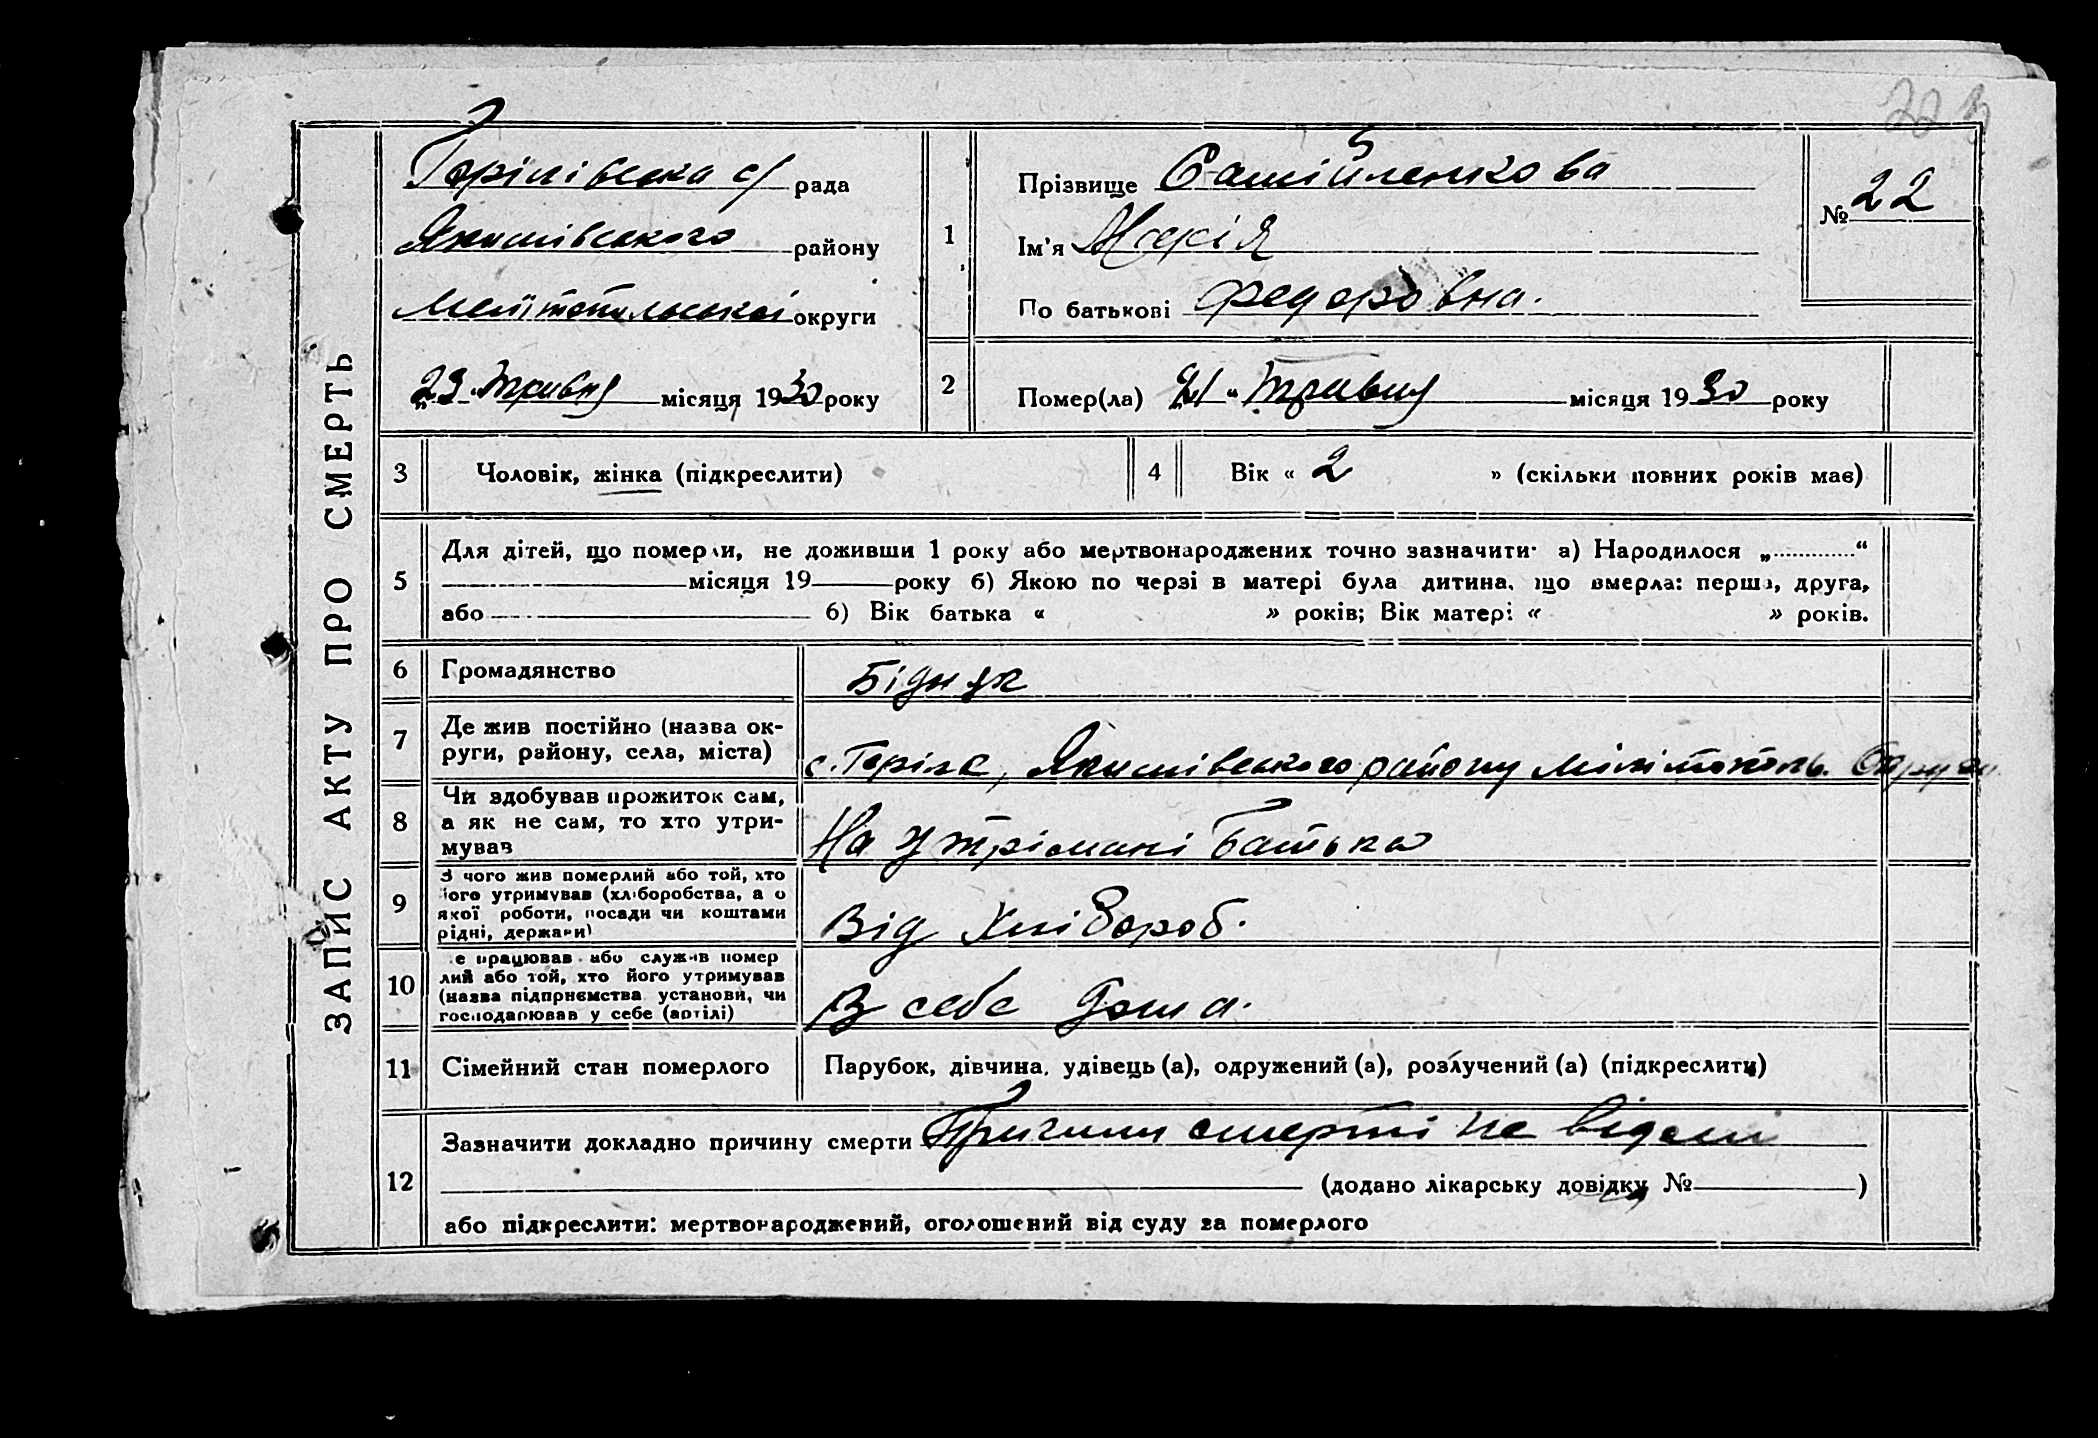 223
ЗАПИС АКТУ ПРО СМЕРТЬ
Горілівська с/рада
Якимівського району
Меліто­польської округи
„23" травня місяця 1930 року
1
Прізвище Самійленкова
Ім'я Марія
По батькові Федоровна.
№ 22
2
Помер(ла) „21" травня місяця 1930 року
3 Чоловік, жінка (підкреслити)
4 Вік « 2 » (скільки повних років має)
5
Для дітей, що померли, не доживши 1 року або мертвонароджених точно зазначити: а) Народилося „............“
місяця 19 року б) Якою по черзі в матері була дитина, що вмерла: перша, друга,
або б) Вік батька « » років; Вік матері « » років.
6 Громадянство Бідняк
7
Де жив постійно (назва ок-
руги, району, села, міста)
Якимівського району Мелітополь. Округи
8
Чи здобував прожиток сам,
а як не сам, то хто утри-
мував
На утрімані батька
9
З чого жив померлий або той, хто
його утримував (хліборобства, а о
якої роботи, посади чи коштами
рідні, держави)
Від Хлібороб.
10
е працював або служив помер
лий або той, хто його утримував
(назва підприємства установи, чи
господарював у себе (артілі)
В себе дома.
11 Сімейний стан померлого Парубок, дівчина, удівець (а), одружений (а), розлучений (а) (підкреслити)
12
Зазначити докладно причину смерти Причини смерті не відомі
(додано лікарську довідку № )
або підкреслити: мертвонароджений, оголошений від суду за померлого